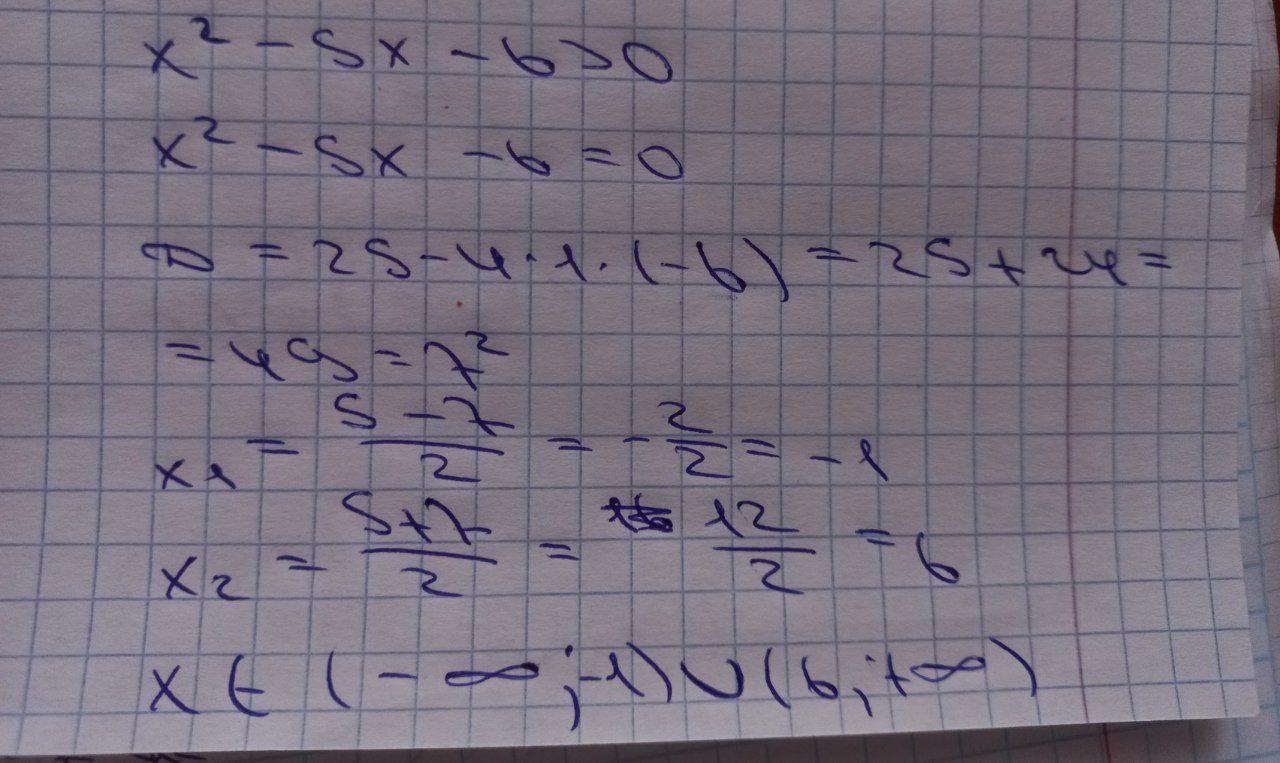 x² - 5x - 6 > 0
x² - 5x - 6 = 0
D = 25 - 4 · 1 · (-6) = 25 + 24 =
= 49 = 7²
x₁ = (5 - 7)/2 = -2/2 = -1
x₂ = (5 + 7)/2 = 12/2 = 6
x ∈ (-∞; -1) ∪ (6; +∞)